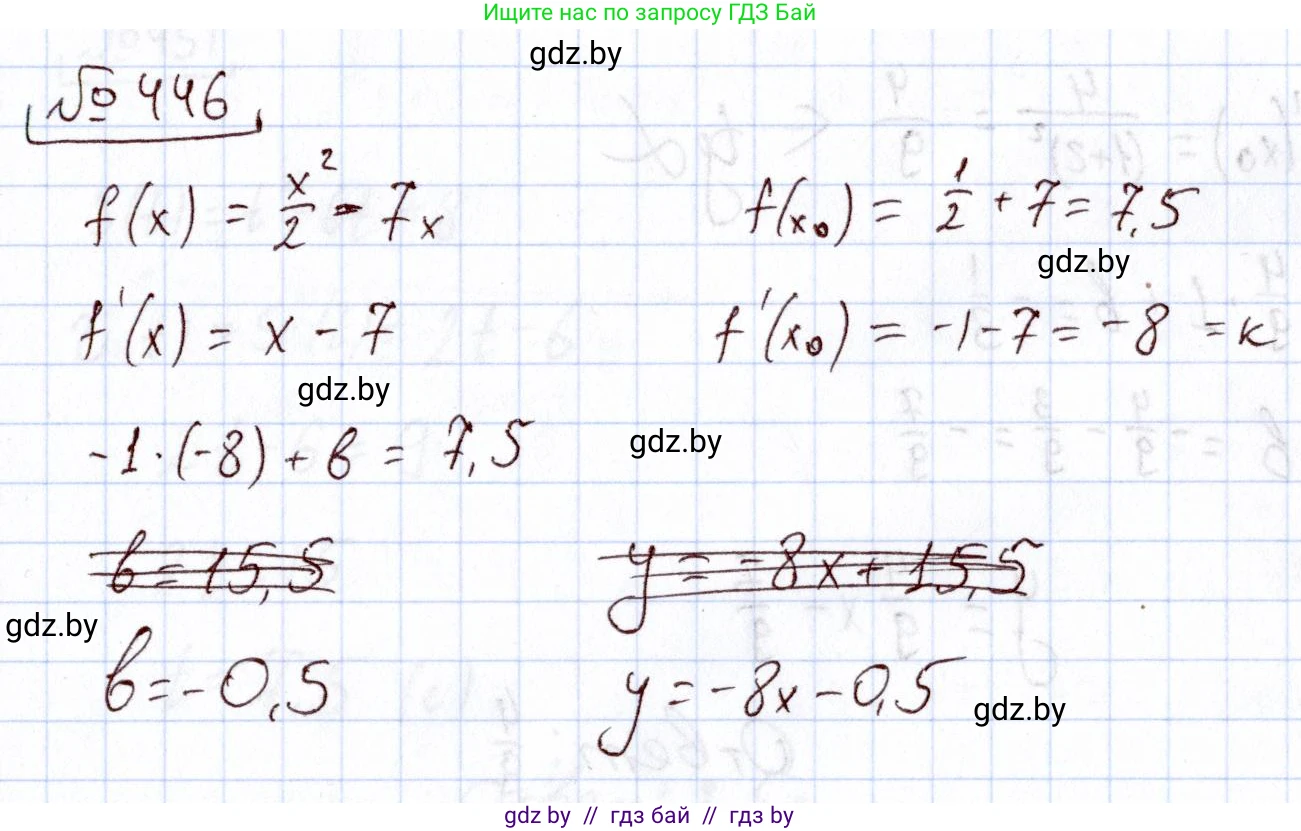 Ищите нас по запросу ГДЗ Бай
gdz.by
№ 446
f(x) = x²/2 - 7x
f(x₀) = 1/2 + 7 = 7,5
gdz.by
f'(x) = x - 7
f'(x₀) = -1 - 7 = -8 = к
gdz.by
-1·(-8) + в = 7,5
gdz.by
в = 15,5
y = -8x + 15,5
gdz.by
в = -0,5
y = -8x - 0,5
gdz.by
gdz by // гдз бай // gdz by